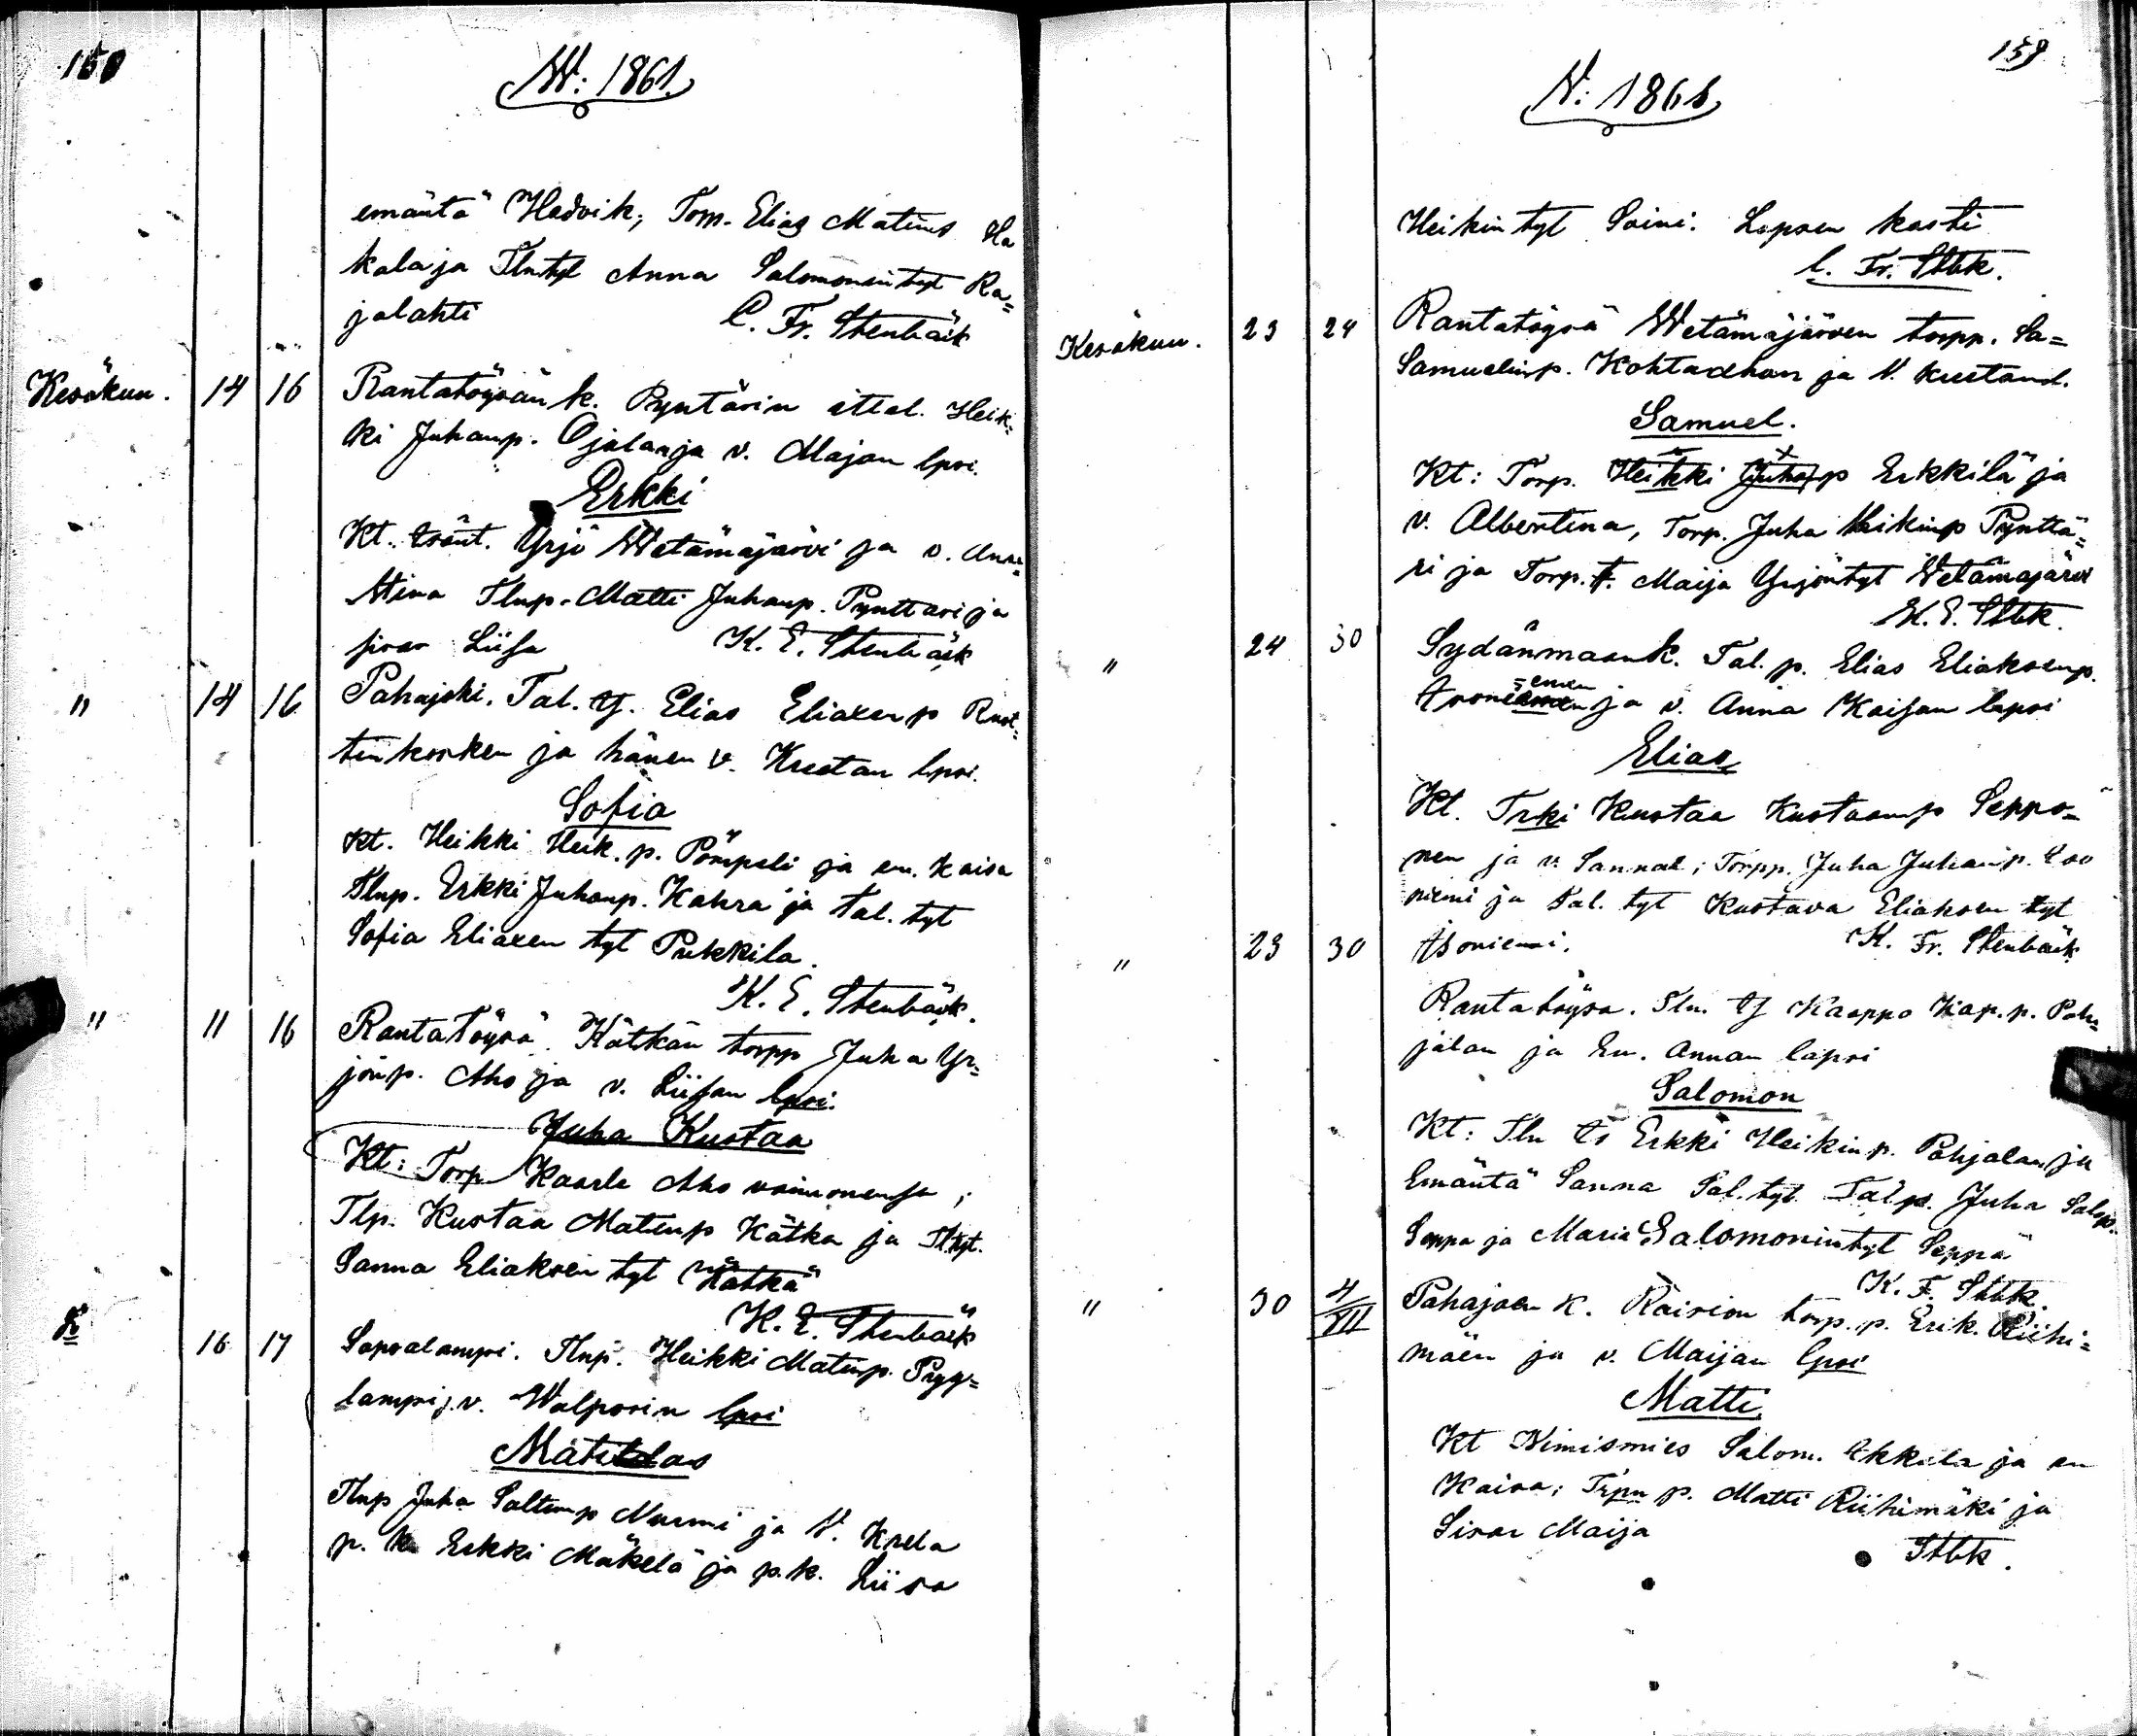 150
W: 1861.
emäntä Hedvik; Tom. Elias Matinp Ha
kala ja Tlntyt Anna Salomonintyt Ra=
jalahti C. Fr. Stenbäck
Kesäkuu. 14 16 Rantatöysän k. Pyntärin ital. Heik=
ki Juhanp. Ojalan ja v. Majan lpsi.
Erkki
Kt. isänt. Yrjö Wetämäjärvi ja v. Anna
Stina Tlnp. Matti Juhanp. Pynttari ja
sisar Liisa K. E. Stenbäck
" 14 16 Pahajoki. Tal. tj. Elias Eliaxenp Rust=
tinkosken ja hänen v. Kreetan lpsi.
Sofia
Kt. Heikki Heik. p. Pömpeli ja em. Kaisa
Tlnp. Erkki Juhanp. Kahra ja tal. tyt
Sofia Eliaxen tyt Pukkila.
K. E. Stenbäck.
" 11 16 Rantatöysä. Kätkän torpp Juha Yr=
jönp. Aho ja v. Liisan lpsi.
Juha Kustaa
Kt: Torp Kaarle Aho vaimonensa;
Tlp. Kustaa Matinp Kätkä ja Tl.tyt.
Sanna Eliaksen tyt Kätkä
K. E. Stenbäck
16 17 Sapsalampi. Tlnp. Heikki Matinp. Pyy=
lampi j. v. Walporin lpsi
Matildas
Tlnp Juha Saltinp Nurmi ja V. Kaela
p. k. Erkki Mäkelä ja p.k. Liisa
159
V: 1861
Heikin tyt Soini. Lapsen kasti
C. Fr. Stbk.
Kesäkuu. 23 24 Rantatöysä Wetämäjärven torpp. Sa=
Samuelinp. Kohtaxhan ja V. kustand.
Samuel.
Kt: Torp. Heikki Juhap Erkkilä ja
v. Albertina, Torp. Juha Heikinp Pynttä=
ri ja Torp. t. Maija Yrjöntyt Wetämäjärvi
K. E. Stbk.
" 24 30 Sydänmaank. Tal. p. Elias Eliaksenp.
=emen
ja v. Anna Kaisan lapsi
Elias
Kt. Trki Kustaa Kustaanp Seppo=
nen ja v. Sannal; Torpp. Juha Juhanp. Iso
niemi ja Tal. tyt Kustava Eliaksen tyt
Isoniemi. K. Fr. Stenbäck
" 23 30 Rantatöysa. Tln. tj Kaappo Kap. p. Poh=
jalan ja Em. Annan lapsi
Salomon
Kt: Tln ts Erkki Heikin p. Pohjalan ja
Emäntä Sanna Sal. tyt Tal p. Juha Salop.
Seppa ja Maria Salomonintyt Seppä
K. F. Stbk.
" 30 4/VII Pahajoen K. Räision torp. p. Erik. Riihi=
mäen ja v. Maijan lpsi
Matti.
Kt Nimismies Salom. Ekkala ja em
Kaisa; Trpn p. Matti Riihimäki ja
Sisar Maija
Stbk.